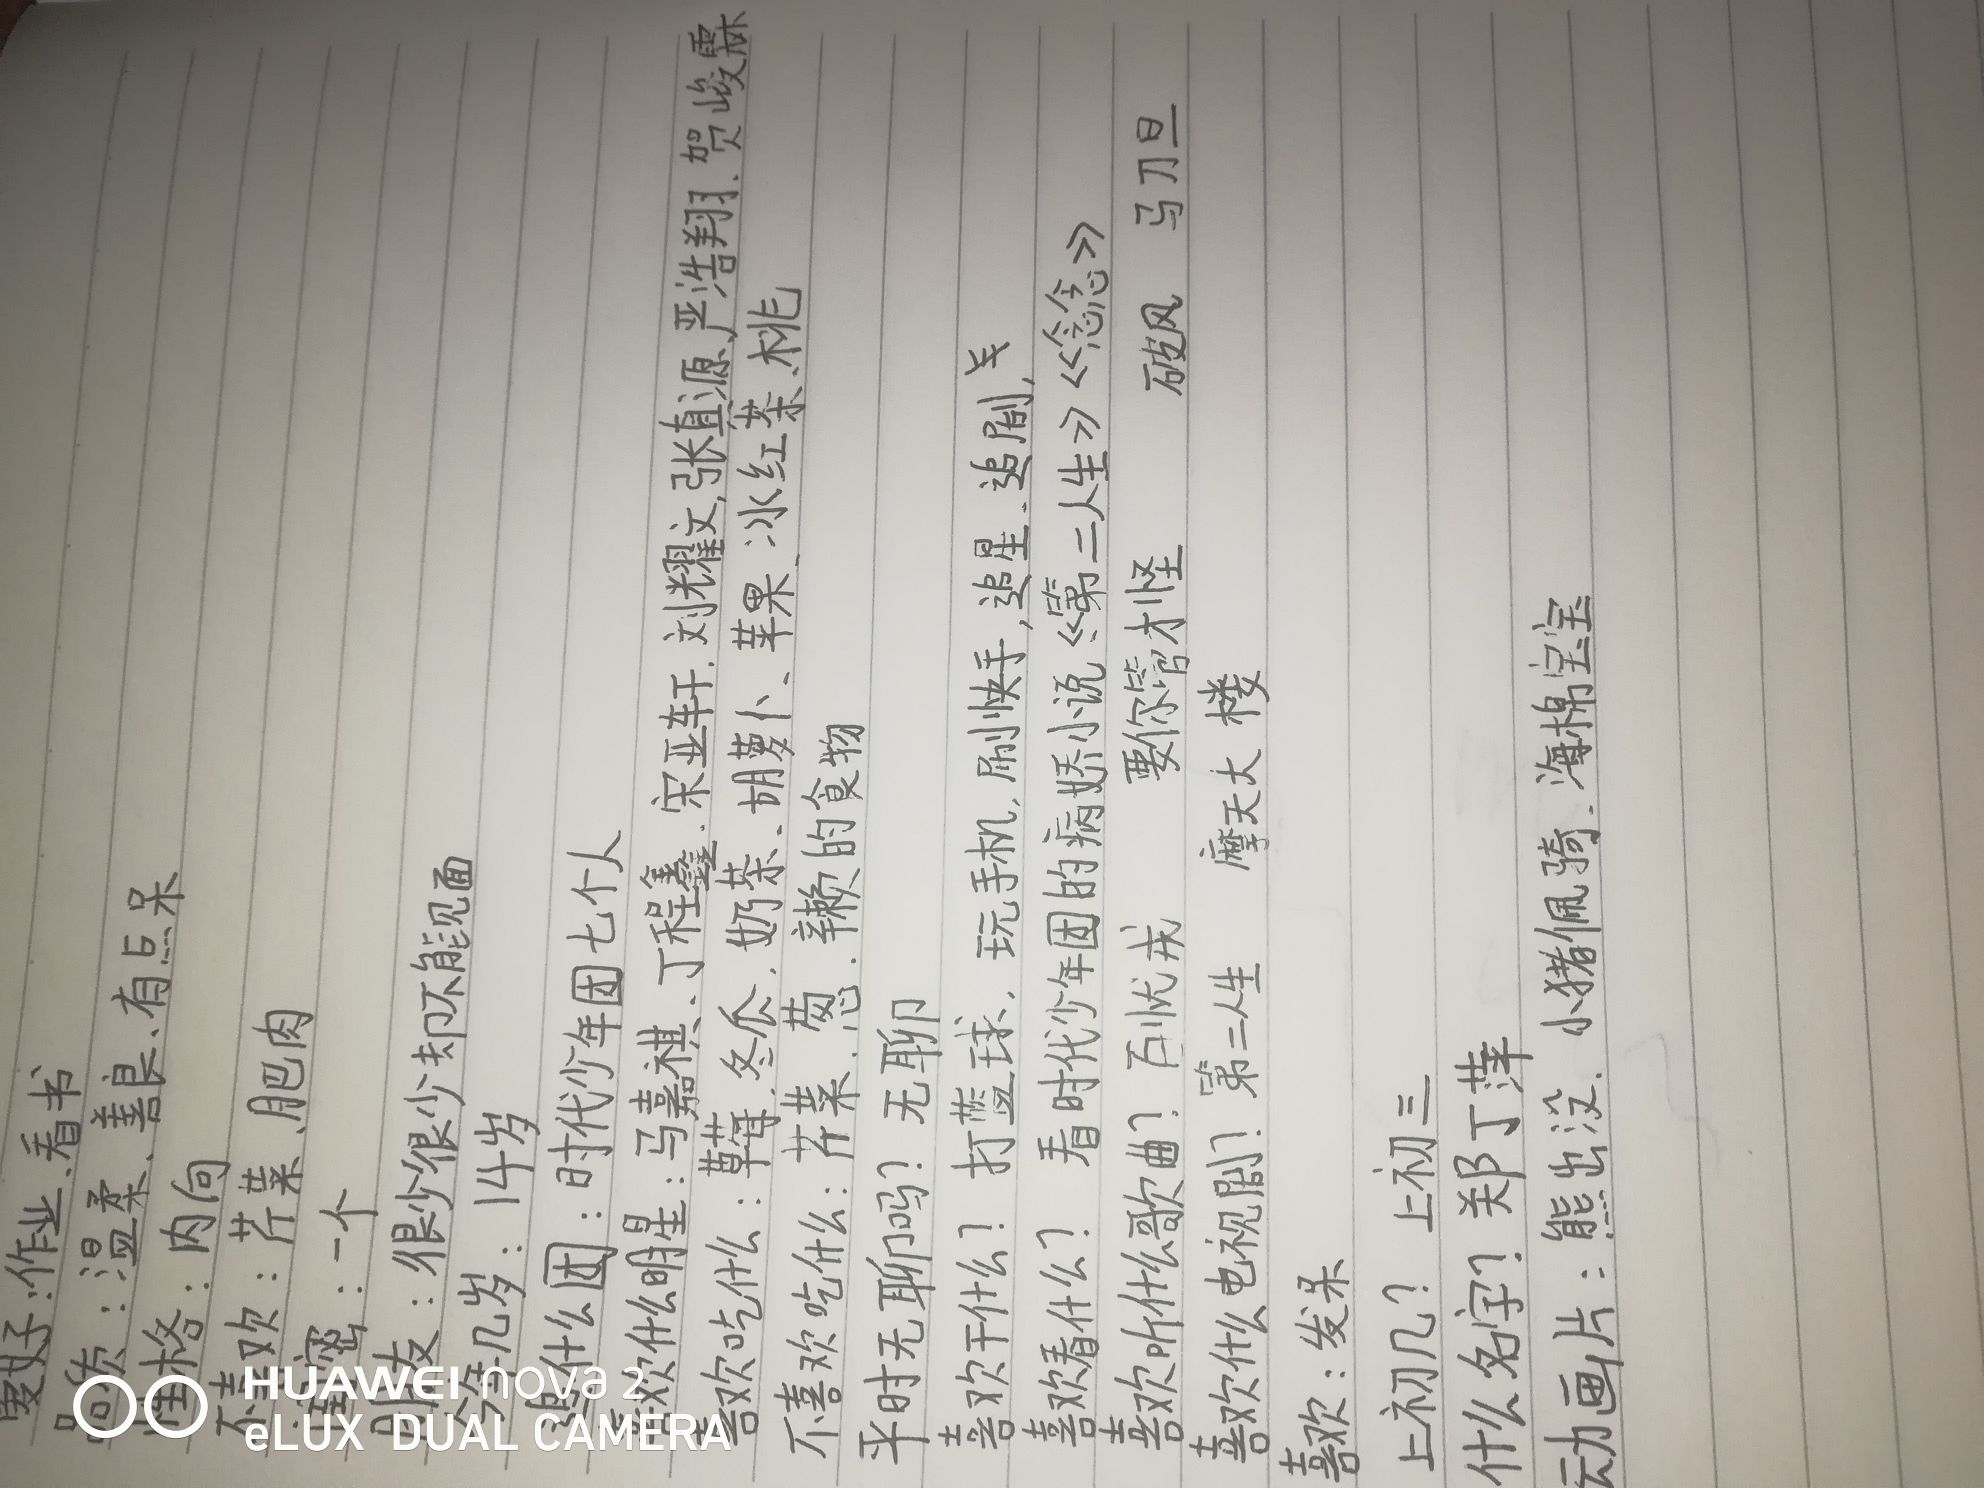 爱好:作业、看书
品质:温柔、善良、有点呆
性格:内向
不喜欢:芹菜、肥肉
闺密:一个
朋友:很少很少却不能见面
今年几岁:14岁
追什么团:时代少年团七个人
喜欢什么明星:马嘉祺、丁程鑫、宋亚轩、刘耀文,张真源、严浩翔、贺峻霖
喜欢吃什么:草莓、冬瓜、奶茶、胡萝卜、苹果、冰红茶、桃
不喜欢吃什么:芹菜、葱、辣的食物
平时无聊吗?无聊
喜欢干什么?打篮球、玩手机、刷快手,追星、追剧,
喜欢看什么?看时代少年团的病娇小说《第二人生》《念念》
喜欢听什么歌曲?百忧戒 要你管才怪 破风 马刀旦
喜欢什么电视剧?第二人生 摩天大楼
喜欢:发呆
上初几?上初三
什么名字?郑丁萍
动画片:熊出没、小猪佩骑、海棉宝宝
HUAWEI nova 2
eLUX DUAL CAMERA